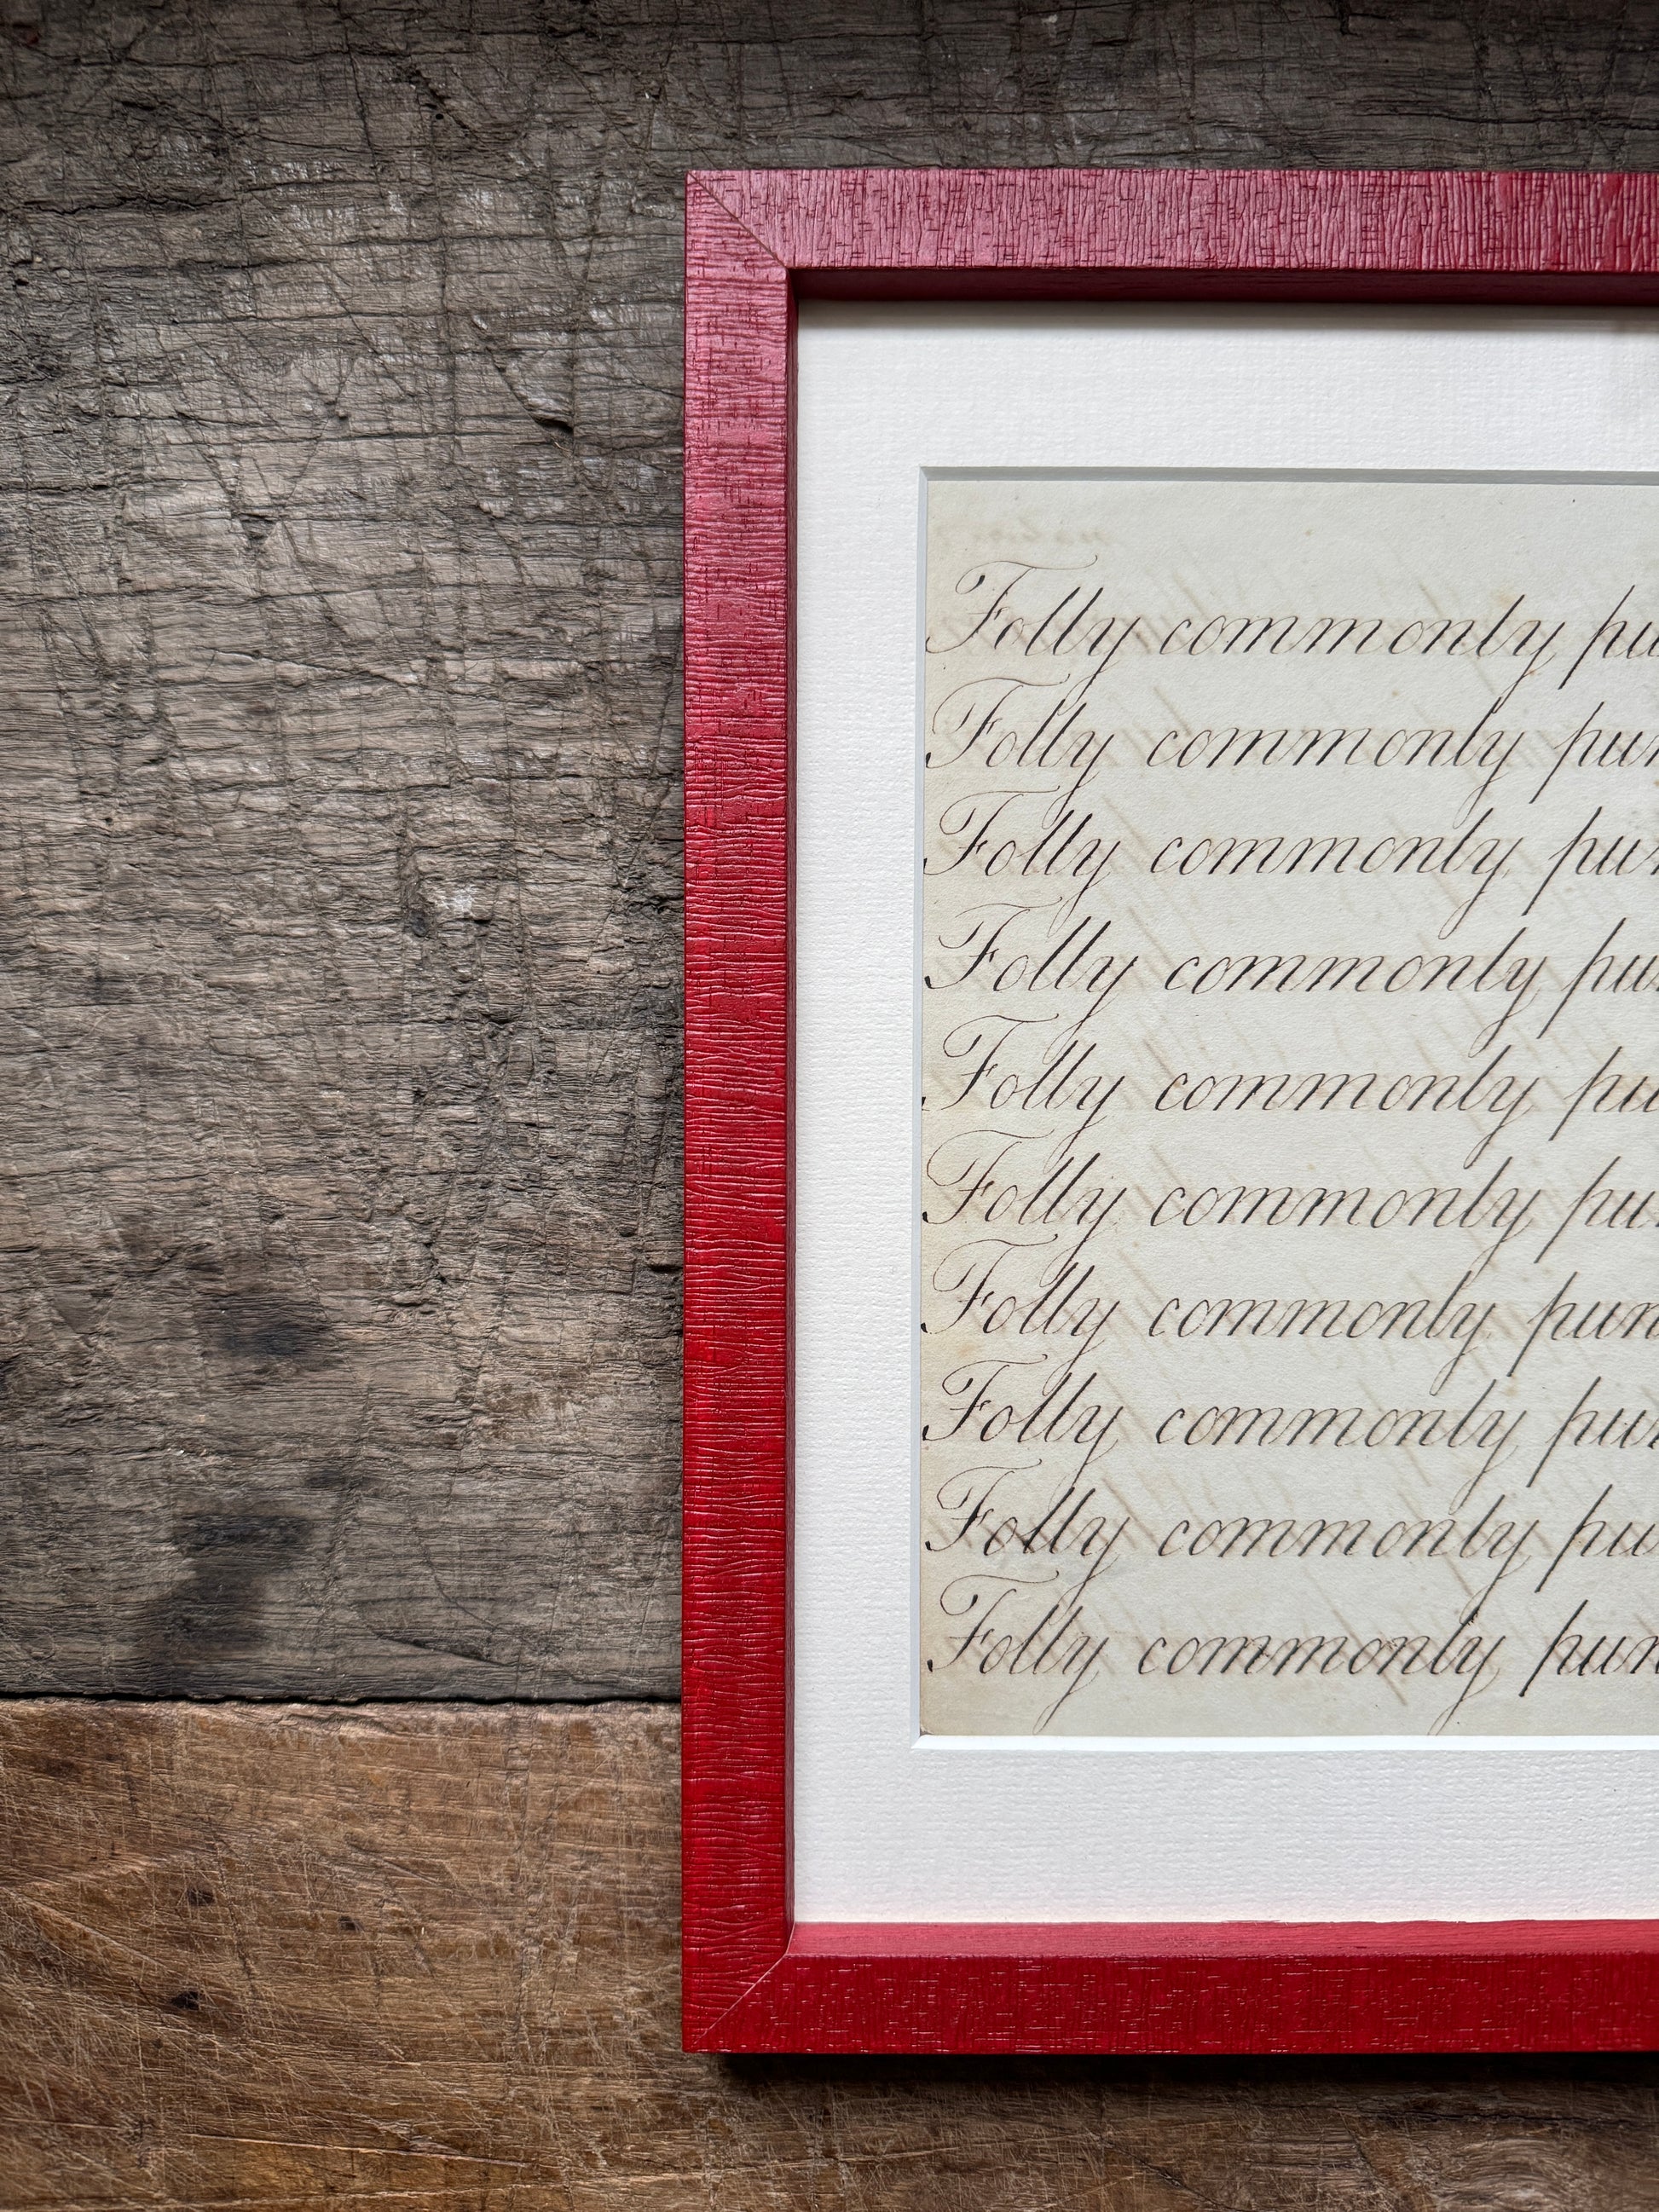 Folly commonly pu
Folly commonly pun
Folly commonly pun
Folly commonly pu
Folly commonly pu
Folly commonly pu
Folly commonly pun
Folly commonly pun
Folly commonly pu
Folly commonly pun